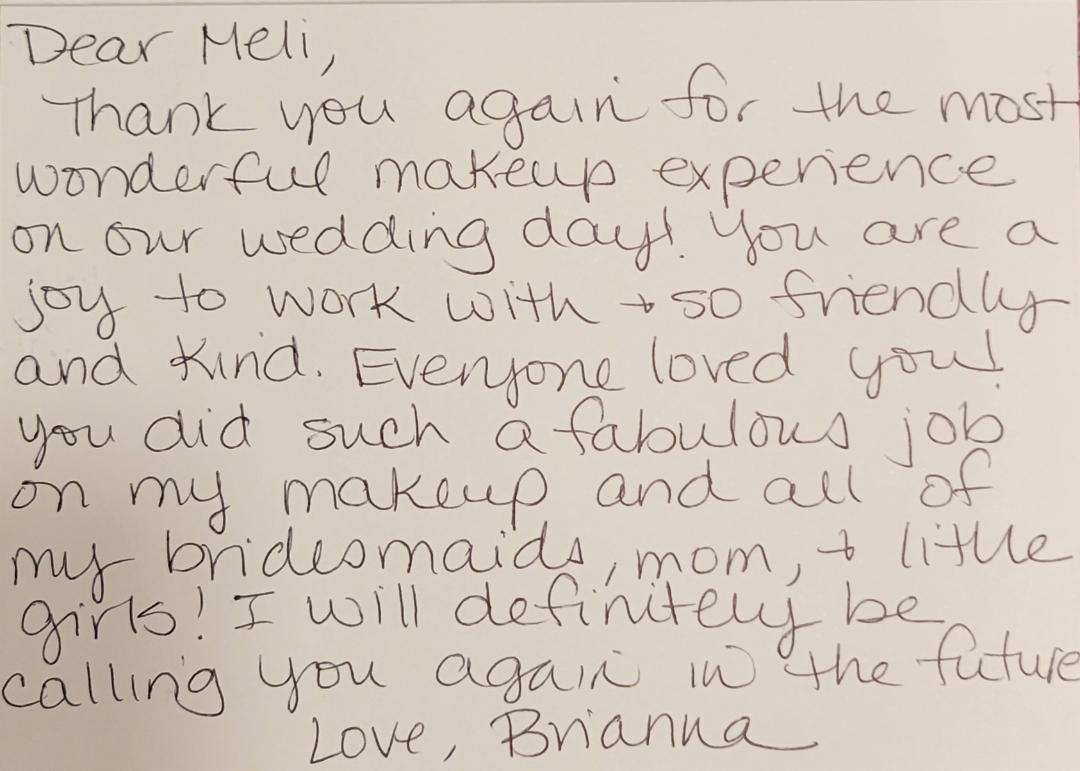 Dear Meli,
Thank you again for the most
wonderful makeup experience
on our wedding day! You are a
joy to work with + so friendly
and kind. Everyone loved you!
you did such a fabulous job
on my makeup and all of
my bridesmaids, mom, + little
girls! I will definitely be
calling you again in the future
Love, Brianna